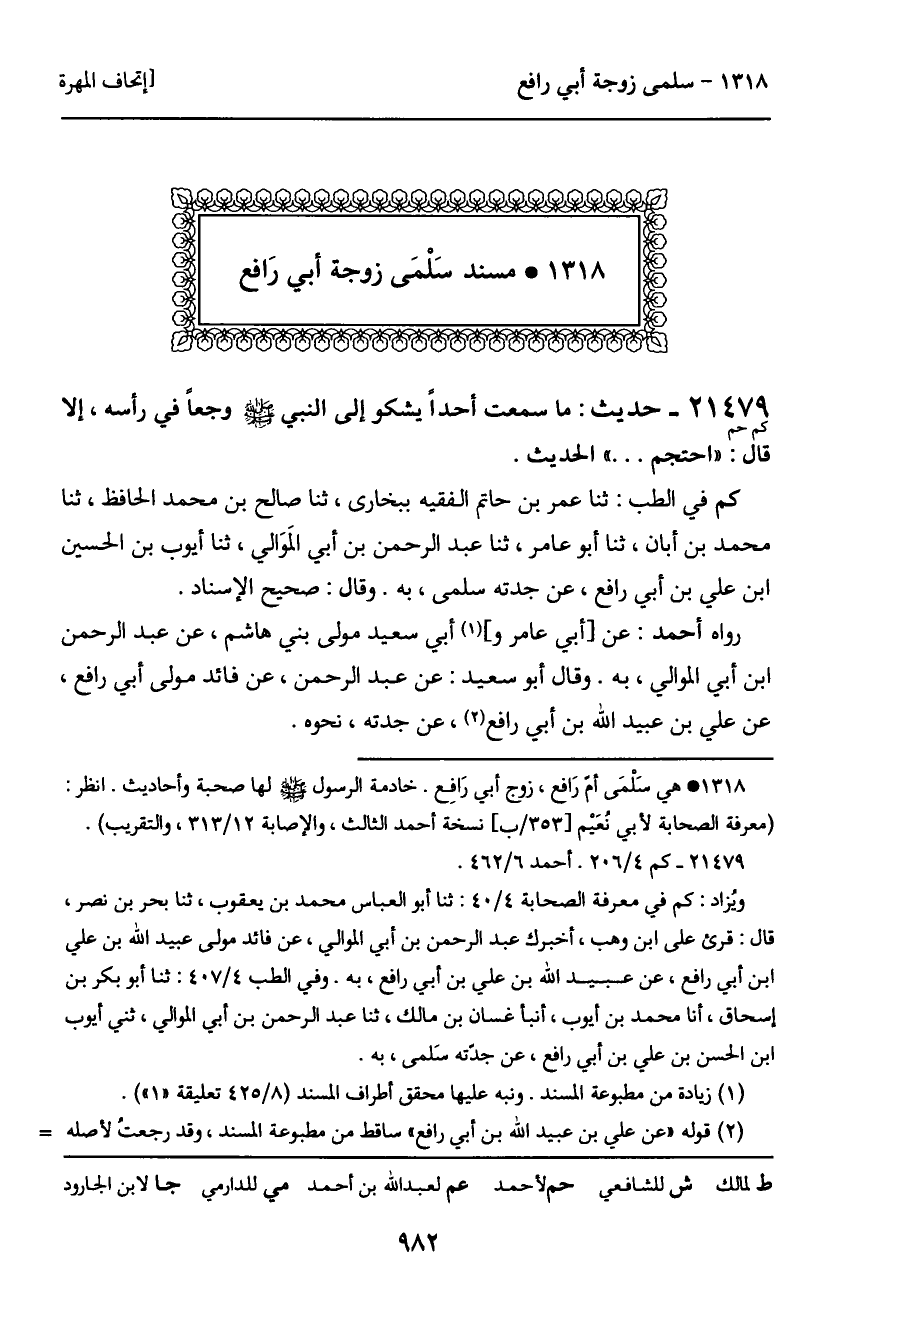 ١٣١٨ - سلمى زوجة أبي رافع [إتحاف المهرة
١٣١٨ • مسند سَلْمَى زوجة أبي رَافع
٢١٤٧٩ ـ حديث : ما سمعت أحداً يشكو إلى النبي ﷺ وجعاً في رأسه ، إلا
كم حم
قال : «احتجم . . .» الحديث .
كم في الطب : ثنا عمر بن حاتم الفقيه ببخارى ، ثنا صالح بن محمد الحافظ ، ثنا
محمد بن أبان ، ثنا أبو عامر ، ثنا عبد الرحمن بن أبي المَوَالي ، ثنا أيوب بن الحسين
ابن علي بن أبي رافع ، عن جدته سلمى ، به . وقال : صحيح الإسناد .
رواه أحمد : عن [أبي عامر و](١) أبي سعيد مولى بني هاشم ، عن عبد الرحمن
ابن أبي الموالي ، به . وقال أبو سعيد : عن عبد الرحمن ، عن فائد مولى أبي رافع ،
عن علي بن عبيد الله بن أبي رافع(٢) ، عن جدته ، نحوه .
١٣١٨• هي سَلْمَى أمّ رَافع ، زوج أبي رَافِع . خادمة الرسول ﷺ لها صحبة وأحاديث . انظر :
(معرفة الصحابة لأبي نُعَيْم [٣٥٣/ب] نسخة أحمد الثالث ، والإصابة ٣١٣/١٢ ، والتقريب) .
٢١٤٧٩ ـ كم ٢٠٦/٤ . أحمد ٤٦٢/٦ .
ويُزاد : كم في معرفة الصحابة ٤٠/٤ : ثنا أبو العباس محمد بن يعقوب ، ثنا بحر بن نصر ،
قال : قرئ على ابن وهب ، أخبرك عبد الرحمن بن أبي الموالي ، عن فائد مولى عبيد الله بن علي
ابن أبي رافع ، عن عبيد الله بن علي بن أبي رافع ، به . وفي الطب ٤٠٧/٤ : ثنا أبو بكر بن
إسحاق ، أنا محمد بن أيوب ، أنبأ غسان بن مالك ، ثنا عبد الرحمن بن أبي الموالي ، ثني أيوب
ابن الحسن بن علي بن أبي رافع ، عن جدّته سَلمى ، به .
(١) زيادة من مطبوعة المسند . ونبه عليها محقق أطراف المسند (٤٢٥/٨ تعليقة «١») .
(٢) قوله «عن علي بن عبيد الله بن أبي رافع» ساقط من مطبوعة المسند ، وقد رجعتُ لأصله =
ط لمالك ش للشافعي حم لأحمد عم لعبدالله بن أحمد مي للدارمي جا لابن الجارود
٩٨٢